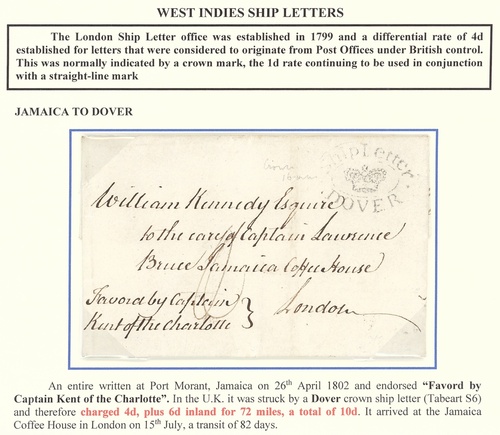 WEST INDIES SHIP LETTERS
The London Ship Letter office was established in 1799 and a differential rate of 4d
established for letters that were considered to originate from Post Offices under British control.
This was normally indicated by a crown mark, the 1d rate continuing to be used in conjunction
with a straight-line mark
JAMAICA TO DOVER
Ship Letter
DOVER
William Kennedy Esquire
to the care of Captain Lawrence
Bruce Jamaica Coffee House
London
Favord by Captain
Kent of the Charlotte
An entire written at Port Morant, Jamaica on 26th April 1802 and endorsed “Favord by
Captain Kent of the Charlotte”. In the U.K. it was struck by a Dover crown ship letter (Tabeart S6)
and therefore charged 4d, plus 6d inland for 72 miles, a total of 10d. It arrived at the Jamaica
Coffee House in London on 15th July, a transit of 82 days.